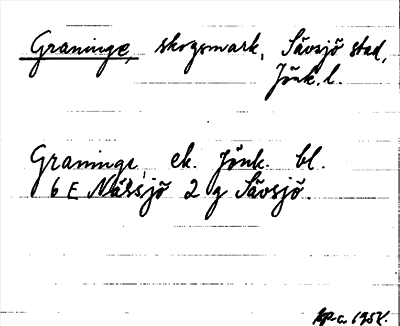 Graninge, skogsmark, Sävsjö stad,
Jönk. l.
Graninge, ek. Jönk. bl.
6 E Nässjö 2 g Sävsjö.